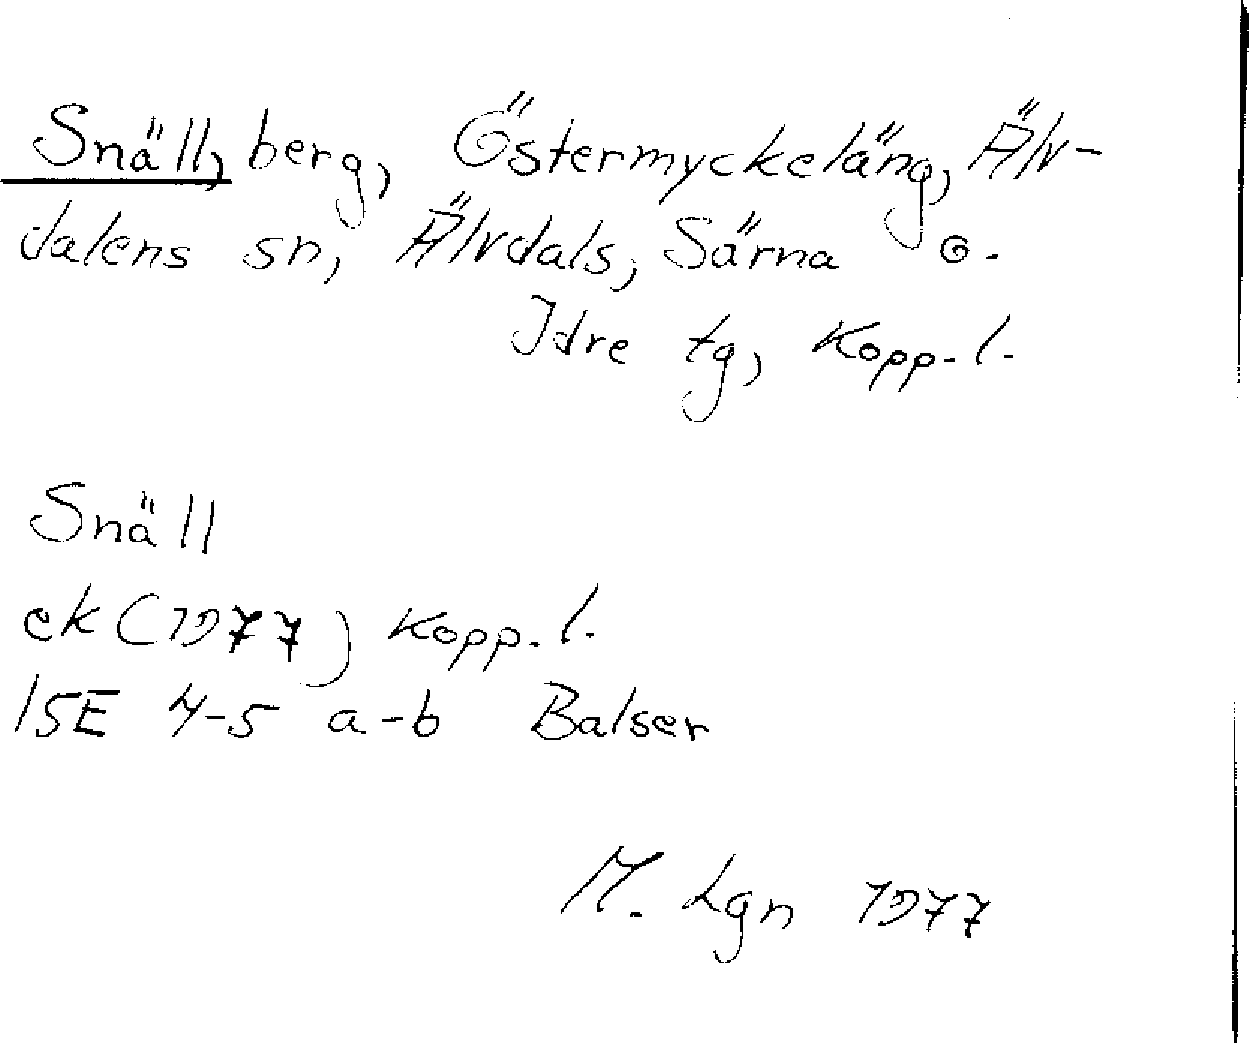 Snäll, berg, Östermyckeläng, Älv-
dalens sn, Älvdals, Särna o.
Idre tg, Kopp. l.
Snäll
ek (1977) Kopp. l.
15E 4-5 a-b Balser
M. Lgn 1977